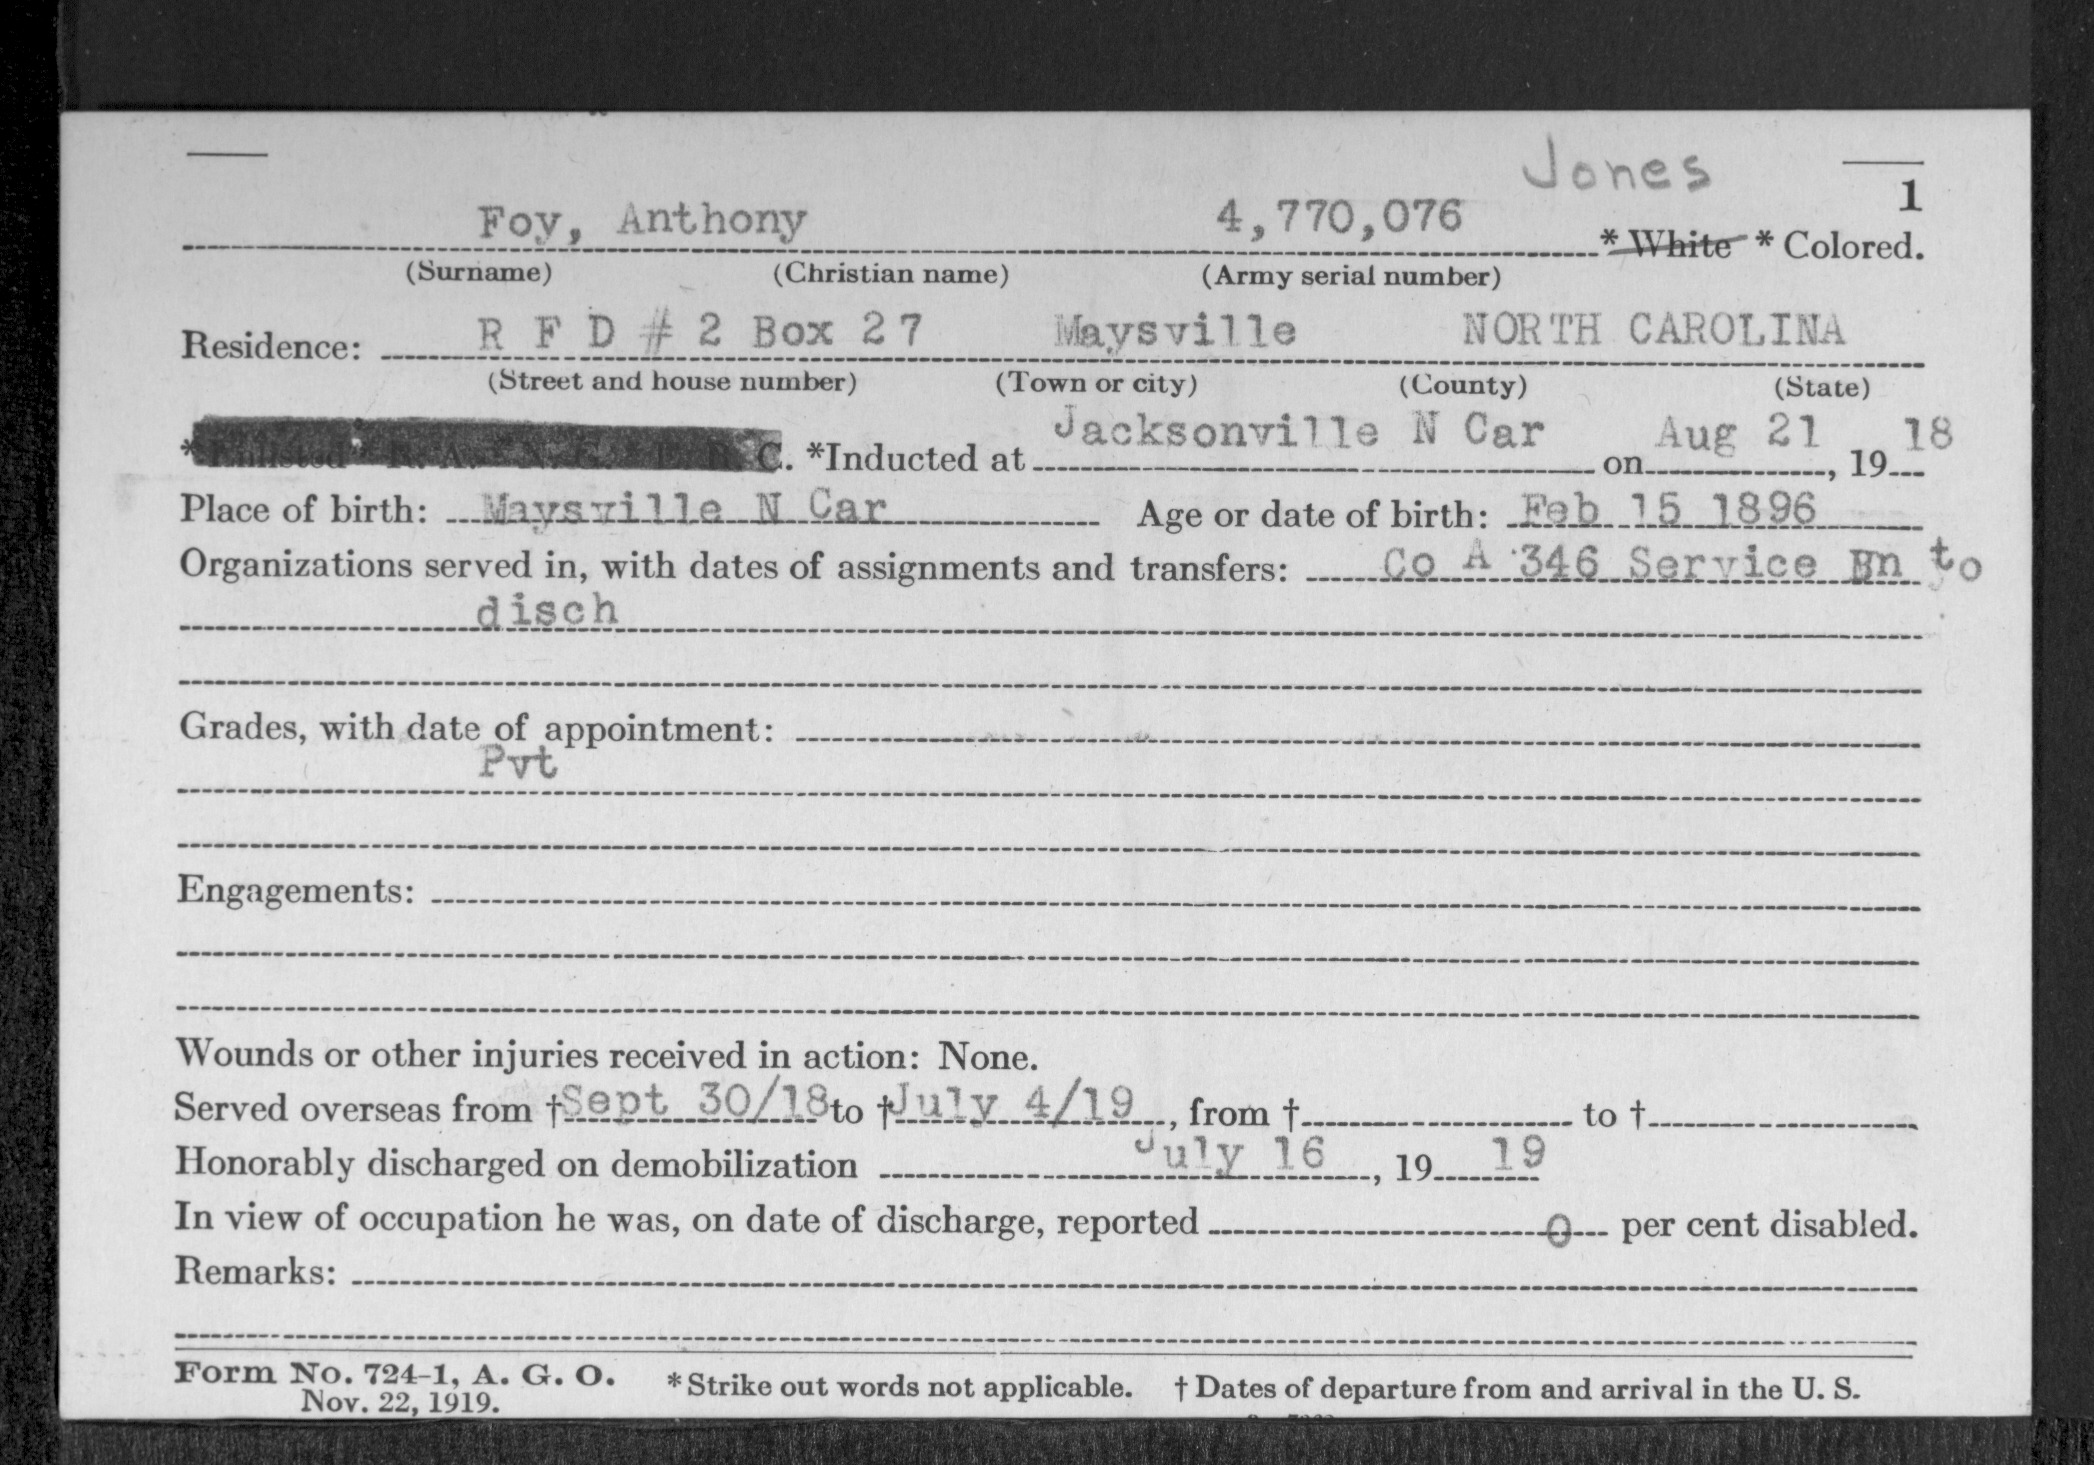 Jones
1
Foy, Anthony 4,770,076 * White * Colored.
(Surname) (Christian name) (Army serial number)
Residence: R F D # 2 Box 27 Maysville NORTH CAROLINA
(Street and house number) (Town or city) (County) (State)
*Enlisted * R. A. * N. G. * E. R. C. *Inducted at Jacksonville N Car on Aug 21, 1918
Place of birth: Maysville N Car Age or date of birth: Feb 15 1896
Organizations served in, with dates of assignments and transfers: Co A 346 Service Bn to
disch
Grades, with date of appointment:
Pvt
Engagements:
Wounds or other injuries received in action: None.
Served overseas from †Sept 30/18 to †July 4/19, from † to †
Honorably discharged on demobilization July 16, 19 19
In view of occupation he was, on date of discharge, reported 0 per cent disabled.
Remarks:
Form No. 724-1, A. G. O. * Strike out words not applicable. † Dates of departure from and arrival in the U. S.
Nov. 22, 1919.